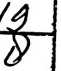 19
8